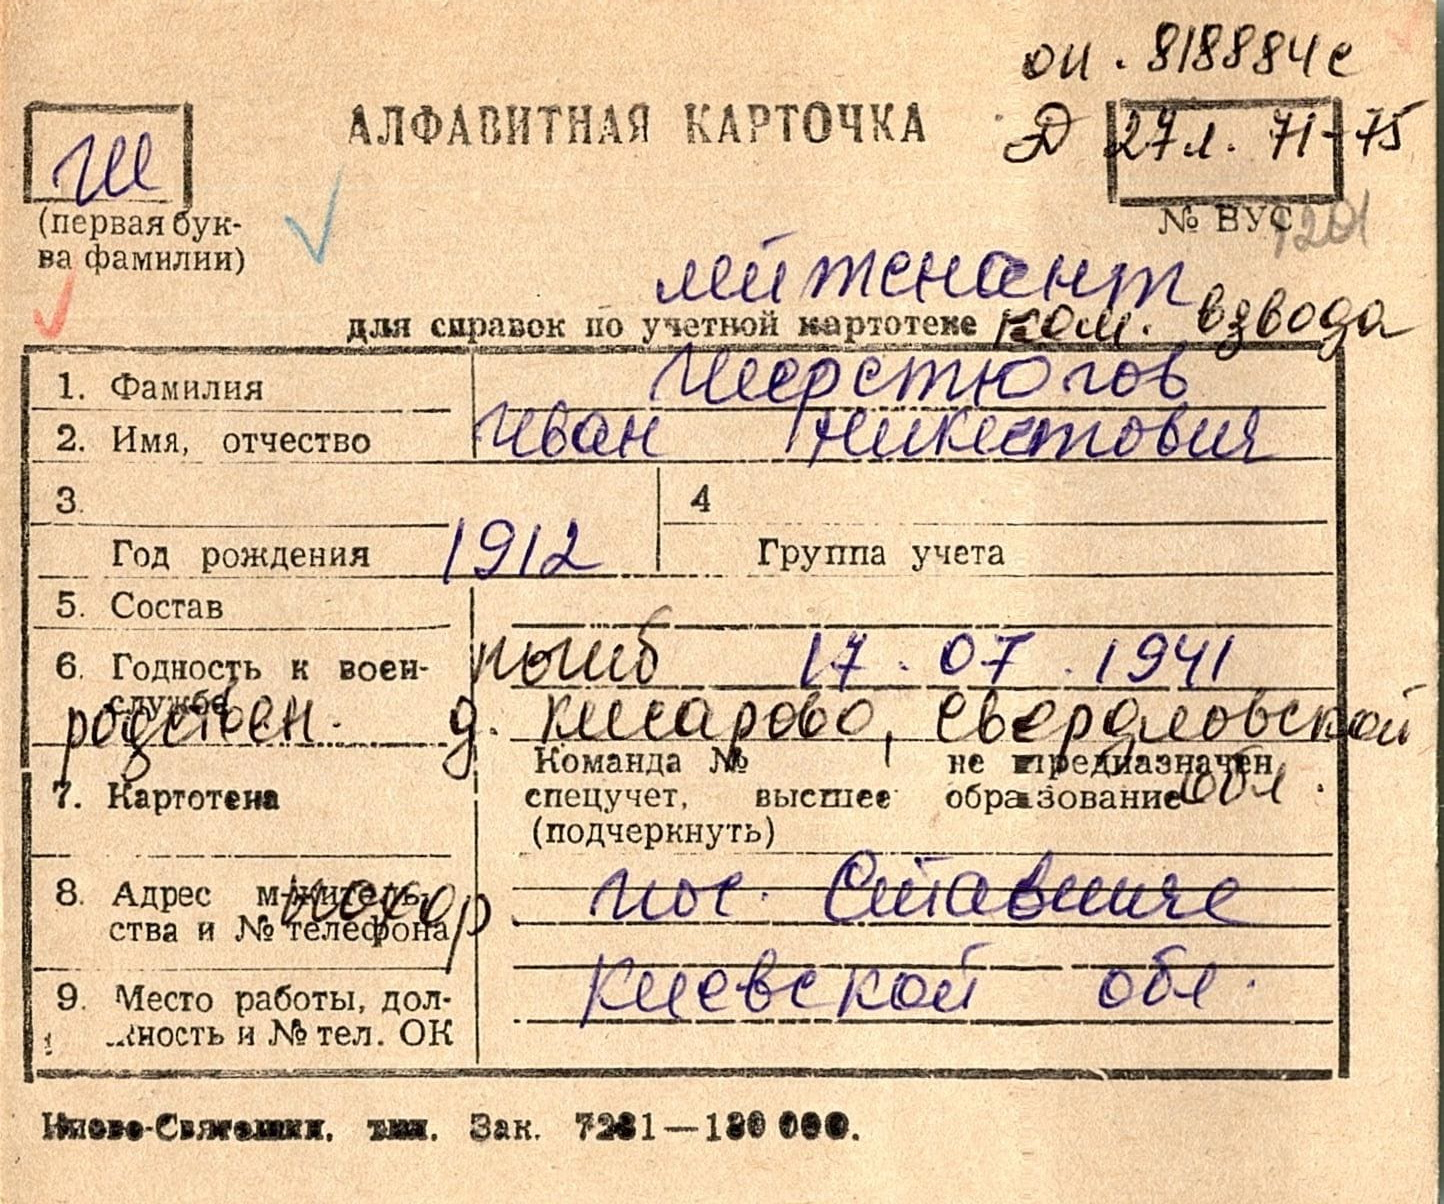 ОИ. 818884с
Ш
АЛФАВИТНАЯ КАРТОЧКА
Д 27л. 71-75
(первая бук-
ва фамилии)
№ ВУС
1201
лейтенант
для справок по учетной картотеке ком. взвода
1. Фамилия Шерстюгов
2. Имя, отчество Иван Никитович
3.
4
Год рождения 1912
Группа учета
5. Состав
6. Годность к воен- погиб 17.07.1941
службе
родствен. д. Кисарово, Свердловской
обл.
Команда № не предназначен,
7. Картотека спецучет, высшее образование
(подчеркнуть)
8. Адрес м-жительь- пос. Ставище
ства и № телефона
похор
Киевской обл.
9. Место работы, дол-
жность и № тел. ОК
Зак. 7281—180 000.